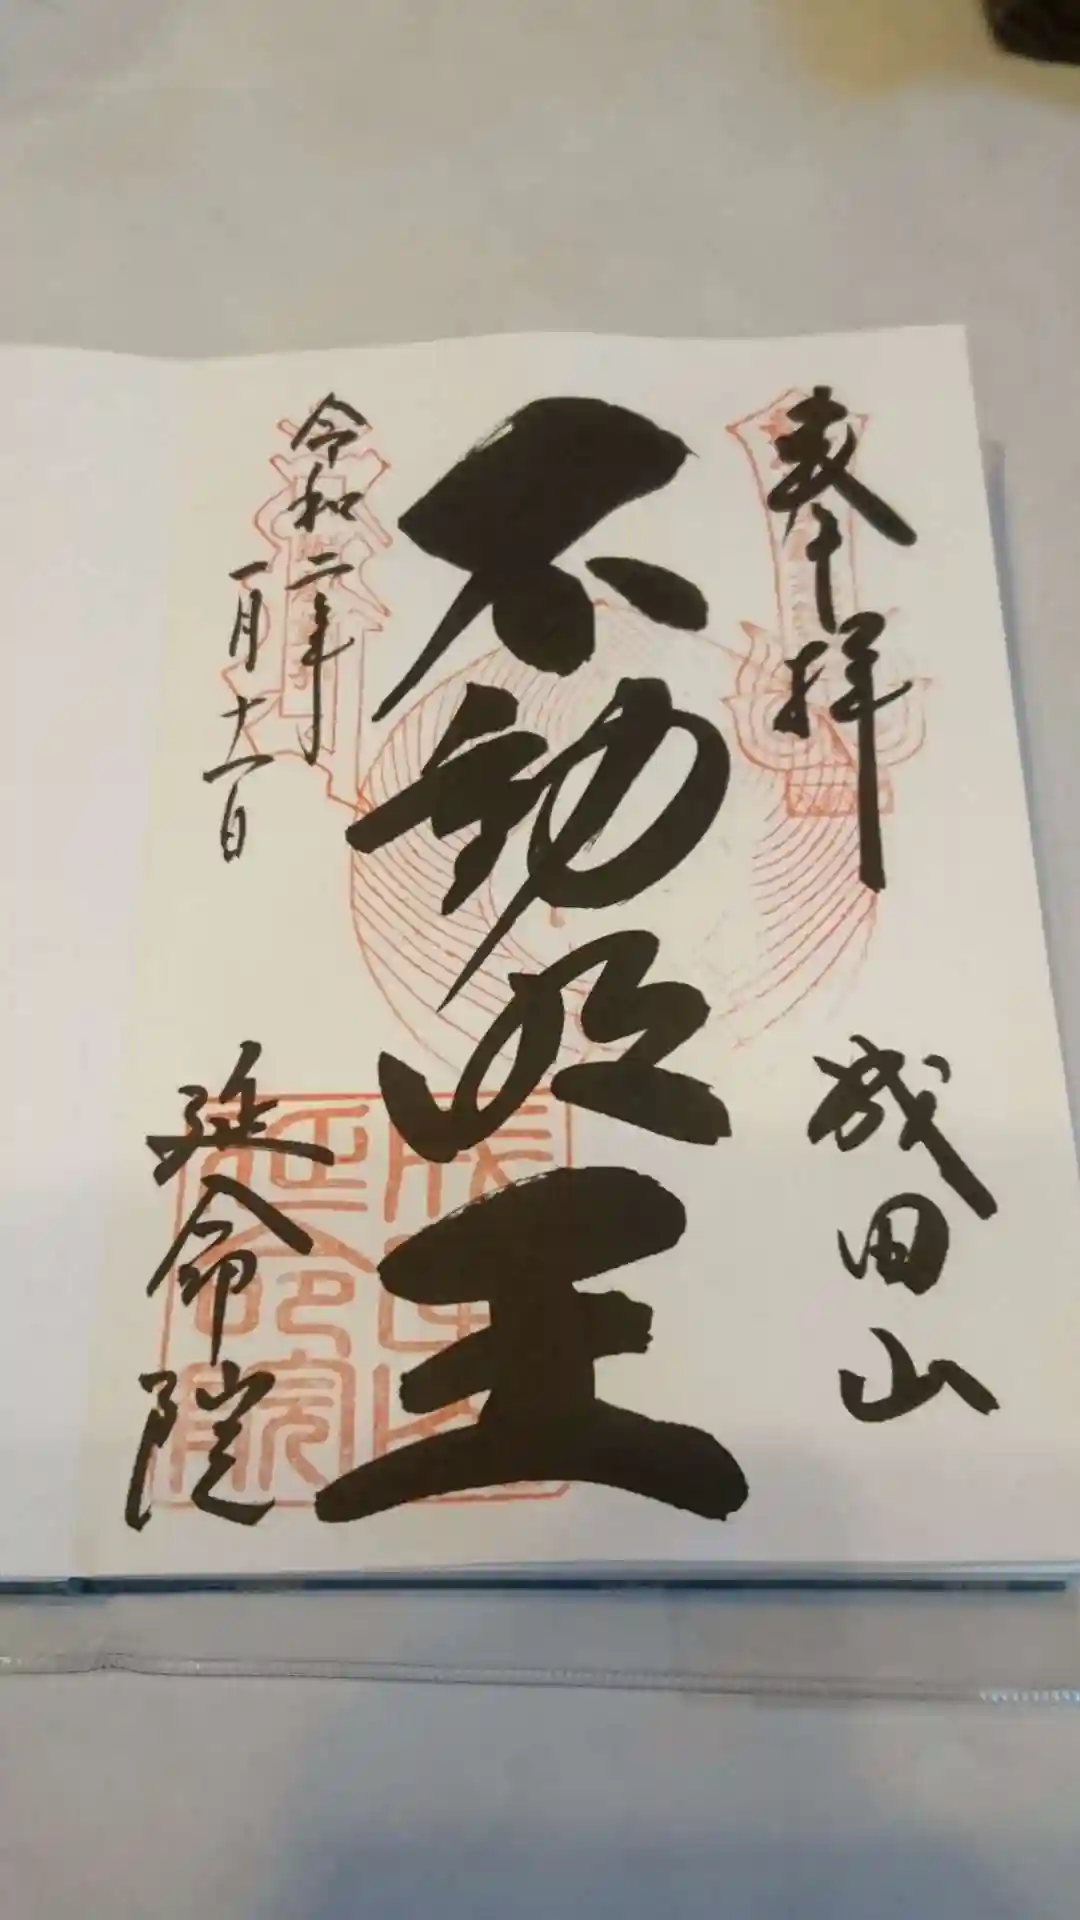 奉拝
成田山
不動明王
令和二年
一月十一日
延命院
成田山
延命院